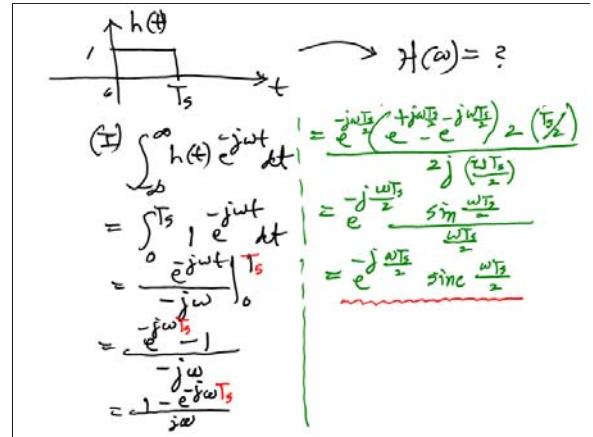 h(t)
1
0
T_s
t
H(ω) = ?
(I) ∫_{-∞}^{∞} h(t) e^{-jωt} dt
= ∫_0^{T_s} 1 e^{-jωt} dt
= e^{-jωt} / -jω |_0^{T_s}
= (e^{-jωT_s} - 1) / -jω
= (1 - e^{-jωT_s}) / jω
= e^{-jωT_s/2} (e^{+jωT_s/2} - e^{-jωT_s/2}) 2 (T_s/2) / 2j (ωT_s/2)
= e^{-j ωT_s/2} sin ωT_s/2 / ωT_s/2
= e^{-j ωT_s/2} sinc ωT_s/2